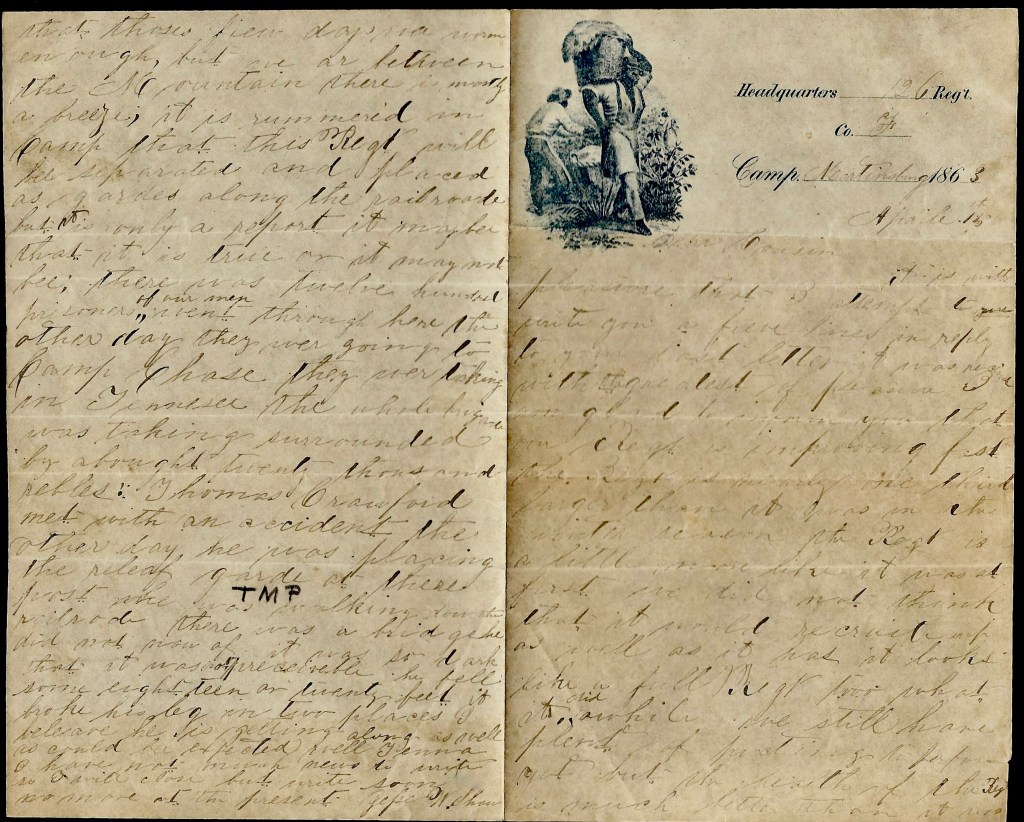 Headquarters 126 Regt.
Co. F
Camp Martinsburg 1863
Aprile 15th
Dear Cousin
it is with
pleasure that I attempt to
write you a few lines in reply
to your last letter it was
with the greatest of pleasure I
am glad to inform you that
our Regt is improving fast
the Regt is nearly one third
larger than it was in the
winter the Regt is
a little more like it was at
first we did not think
that it would recruite up
as well as it has it looks
like a full Regt too what
it did awhile we still have
plenty of
yet but the health of the Reg
is much better than it was
that thoses fiew days was worm
enough, but we ar between
the Mountain there is mostly
a breeze; it is rummered in
Camp that this Regt will
be separated and placed
as gardes along the railroade
but it is only a report it maybee
that it is true or it may not
bee; there was twelve hundred
prizoners of our men went through here the
other day they wer going to
Camp Chase they wer taking
in Tennesee the whole brigade
was taking surrounded
by abought twenty thousand
rebles: Thomas Crawford
met with an accident the
other day, he was placing
the releaf garde at there
post he was walking down the
TMP
railrode there was a bridge he
did not now of it was so dark
that it was not preceivible he fell
some eighteen or twenty feet it
broke his leg in two places I
beleave he is getting along as well
as could be expected well Jenna
I have not much news to write
so I will close but write soon
no more at the present